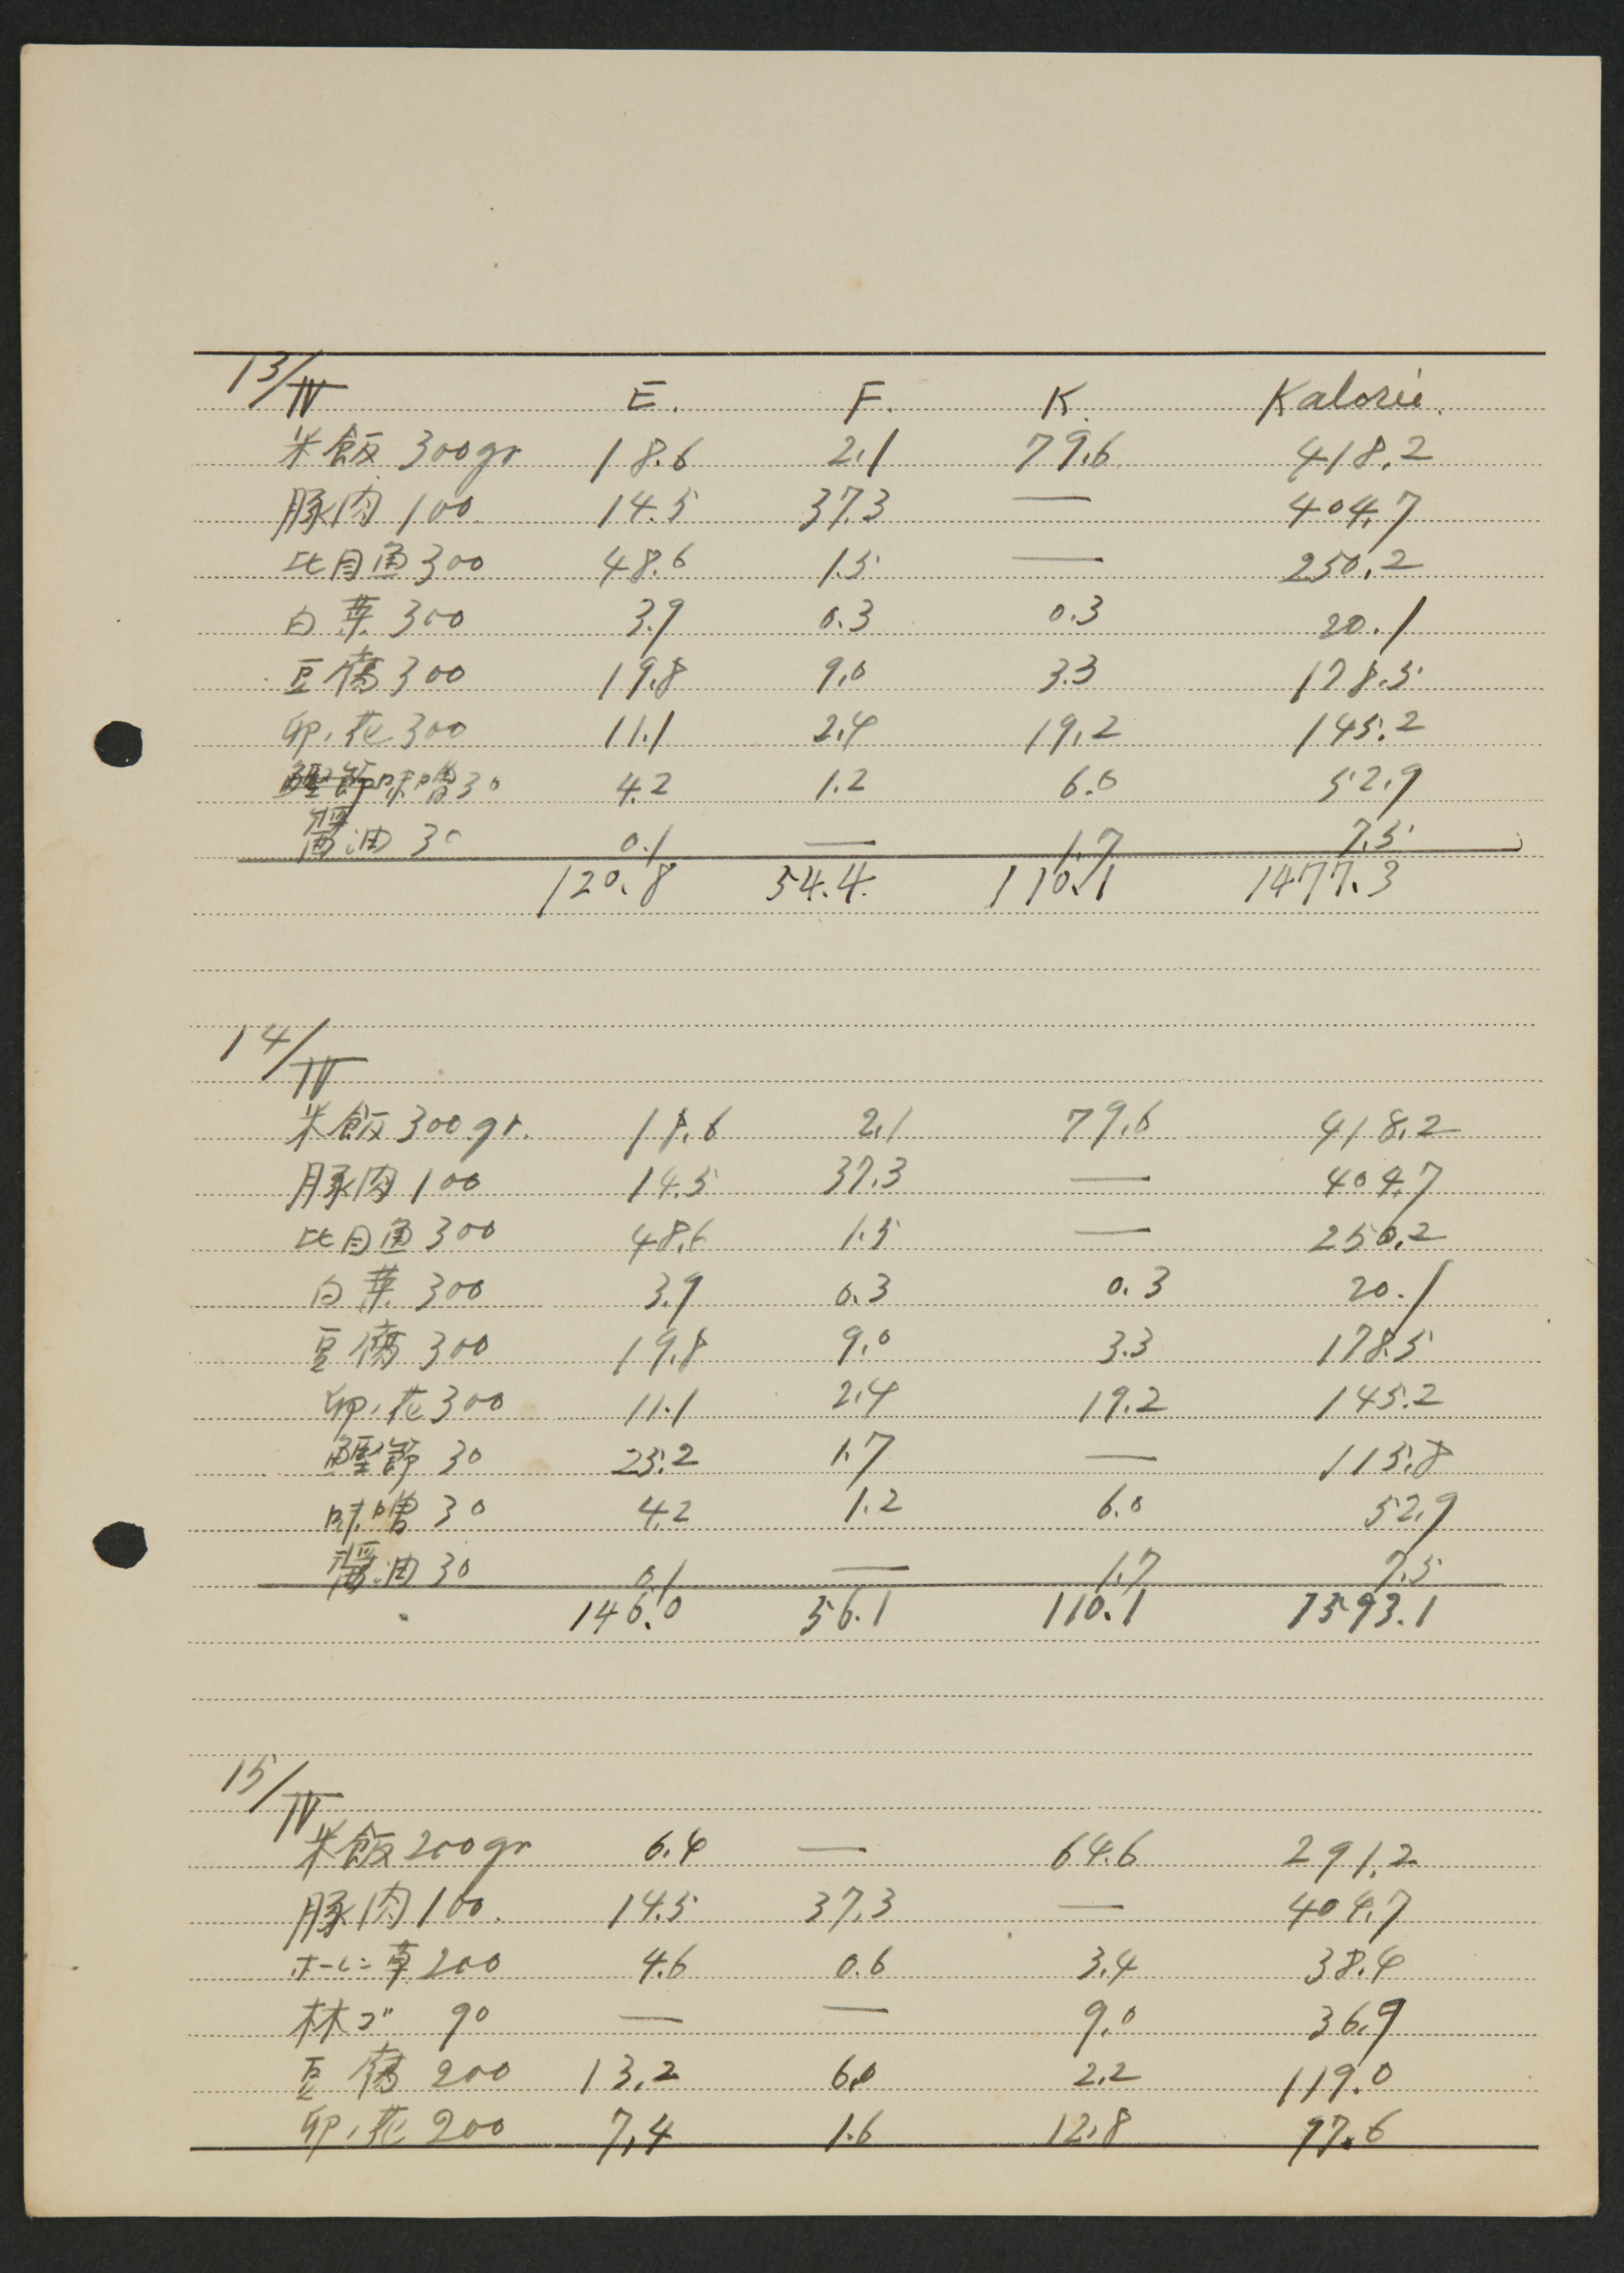 13/IV E. F. K. Kalorie.
米飯 300gr 18.6 2.1 79.6 418.2
豚肉 100 14.5 37.3 — 404.7
比目魚 300 48.6 1.5 — 250.2
白菜 300 3.9 0.3 0.3 20.1
豆腐 300 19.8 9.0 3.3 178.5
卯ノ花 300 11.1 2.4 19.2 145.2
味噌 30 4.2 1.2 6.0 52.9
醤油 30 0.1 — 1.7 7.5
120.8 54.4 110.1 1477.3
14/IV
米飯 300gr. 18.6 2.1 79.6 418.2
豚肉 100 14.5 37.3 — 404.7
比目魚 300 48.6 1.5 — 250.2
白菜 300 3.9 0.3 0.3 20.1
豆腐 300 19.8 9.0 3.3 178.5
卯ノ花 300 11.1 2.4 19.2 145.2
鰹節 30 25.2 1.7 — 115.8
味噌 30 4.2 1.2 6.0 52.9
醤油 30 0.1 — 1.7 7.5
146.0 56.1 110.1 1593.1
15/IV
米飯 200gr 6.4 — 64.6 291.2
豚肉 100. 14.5 37.3 — 404.7
ホーレン草 200 4.6 0.6 3.4 38.4
林ゴ 90 — — 9.0 36.9
豆腐 200 13.2 6.0 2.2 119.0
卯ノ花 200 7.4 1.6 12.8 97.6